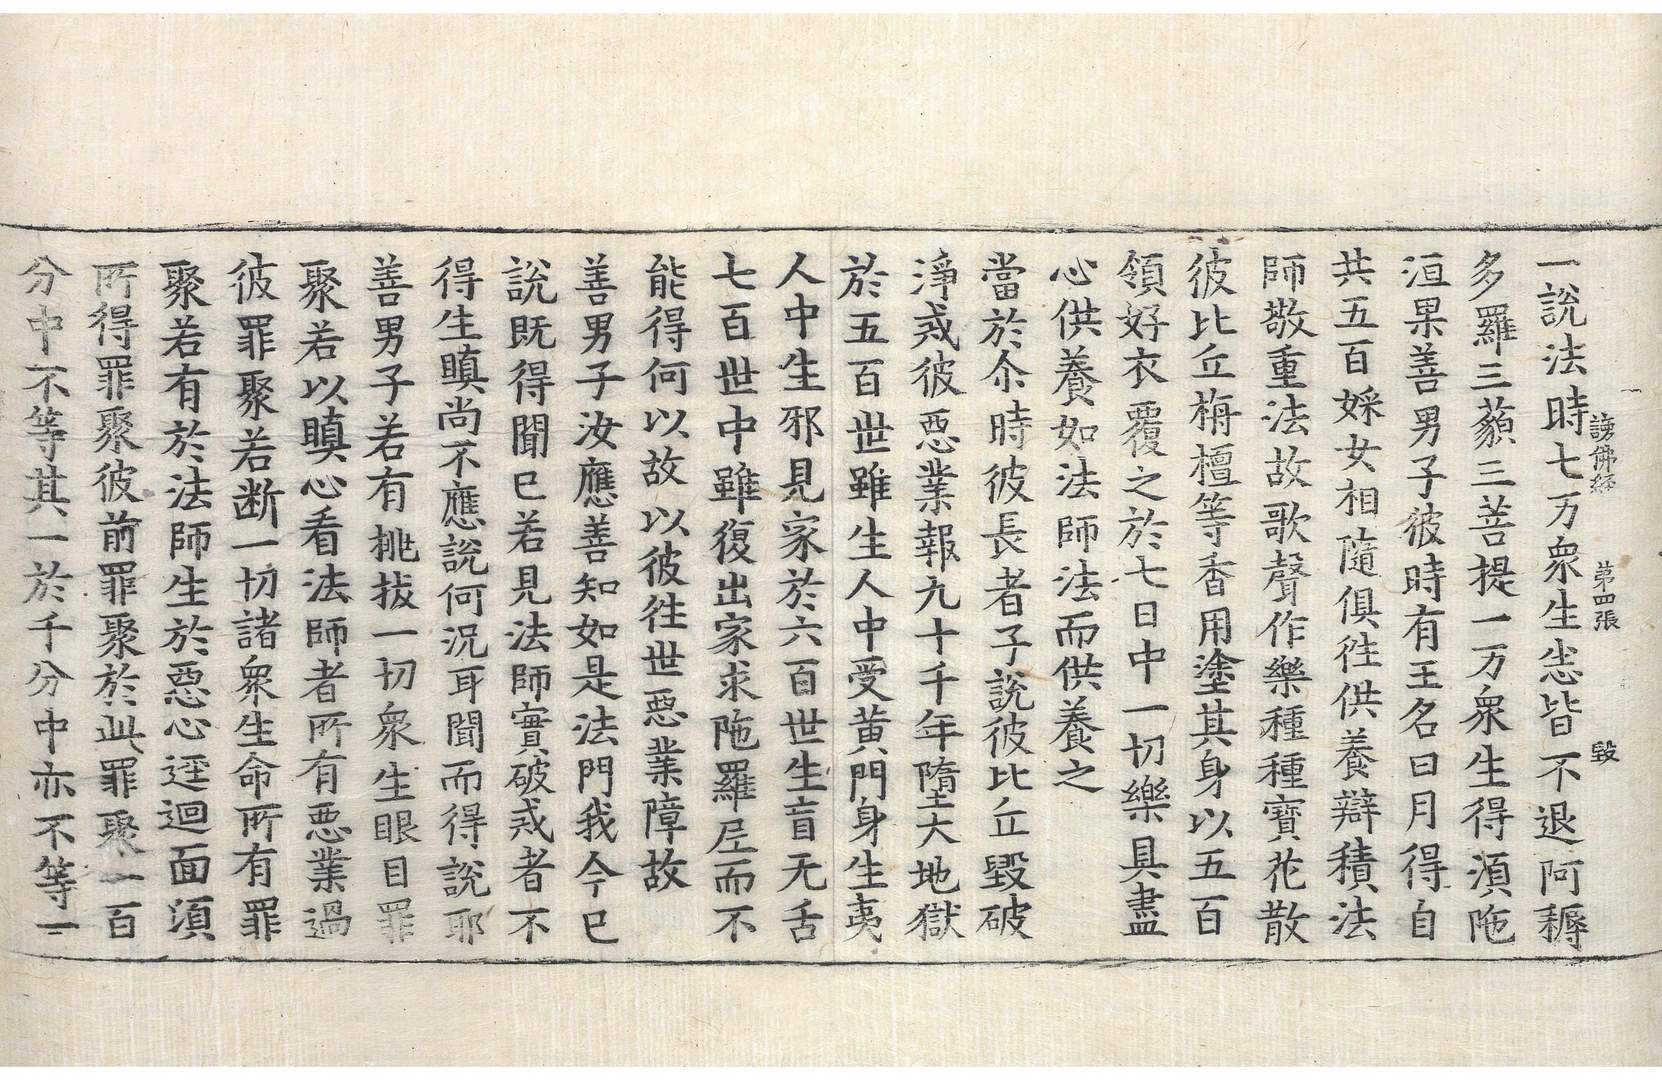 謗佛經 第四張 毀
一說法時七万衆生悉皆不退阿耨
多羅三藐三菩提一万衆生得湏陁
洹果善男子彼時有王名曰月得自
共五百婇女相隨俱徃供養辯積法
師敬重法故歌聲作樂種種寶花散
彼比丘栴檀等香用塗其身以五百
領好衣覆之於七日中一切樂具盡
心供養如法師法而供養之
當於尒時彼長者子說彼比丘毀破
淨戒彼惡業報九十千年墮大地獄
於五百世雖生人中受黄門身生夷
人中生邪見家於六百世生盲无舌
七百世中雖復出家求陁羅尼而不
能得何以故以彼往世惡業障故
善男子汝應善知如是法門我今已
說既得聞已若見法師實破戒者不
得生瞋尚不應說何況耳聞而得說耶
善男子若有挑拔一切衆生眼目罪
聚若以瞋心看法師者所有惡業過
彼罪聚若断一切諸衆生命所有罪
聚若有於法師生於惡心逕迴面湏
所得罪聚彼前罪聚於此罪聚一百
分中不等其一於千分中亦不等一